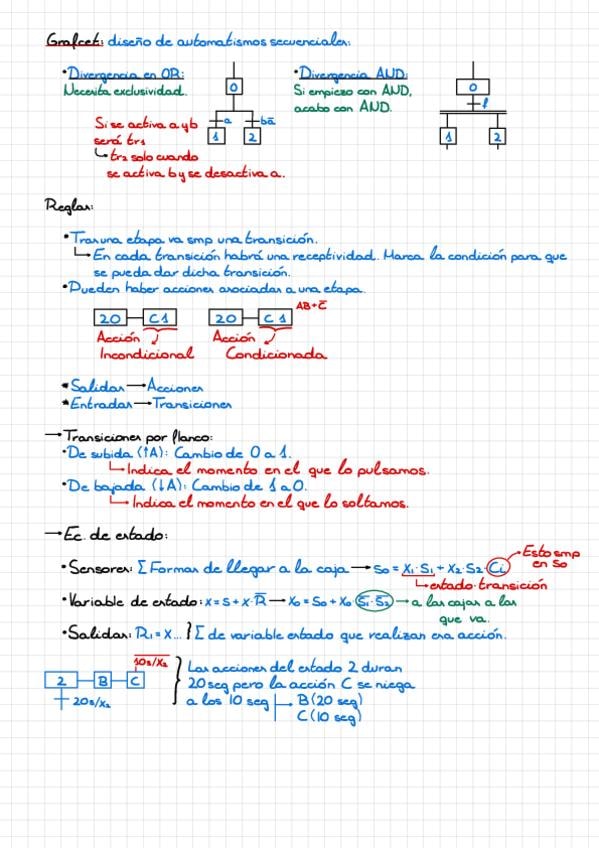 Grafcet: diseño de automatismos secuenciales:
• Divergencia en OR:
Necesita exclusividad.
0
a
bā
1
2
Si se activa a y b
será tr1
↳ tr2 solo cuando
se activa b y se desactiva a.
• Divergencia AND:
Si empiezo con AND,
acabo con AND.
0
1
2
Reglas:
• Tras una etapa va smp una transición.
↳ En cada transición habrá una receptividad. Marca la condición para que
se pueda dar dicha transición.
• Pueden haber acciones asociadas a una etapa.
20 C1
20 C1 AB+C̅
Acción
Incondicional
Acción
Condicionada
* Salidas → Acciones
* Entradas → Transiciones
→ Transiciones por flanco:
• De subida (↑A): Cambio de 0 a 1.
↳ Indica el momento en el que lo pulsamos.
• De bajada (↓A): Cambio de 1 a 0.
↳ Indica el momento en el que lo soltamos.
→ Ec. de estado:
• Sensores: Σ Formas de llegar a la caja → S0 = X1·S1 + X2·S2·Ci
Esto smp
en S0
↳ estado·transición
• Variable de estado: X = S + X·R̅ → X0 = S0 + X0·(S̅1·S̅2) → a las cajas a las
que va.
• Salidas: R1 = X... } Σ de variable estado que realizan esa acción.
2 B C
10s/X2
20s/X2
Las acciones del estado 2 duran
20 seg pero la acción C se niega
a los 10 seg → B (20 seg)
C (10 seg)